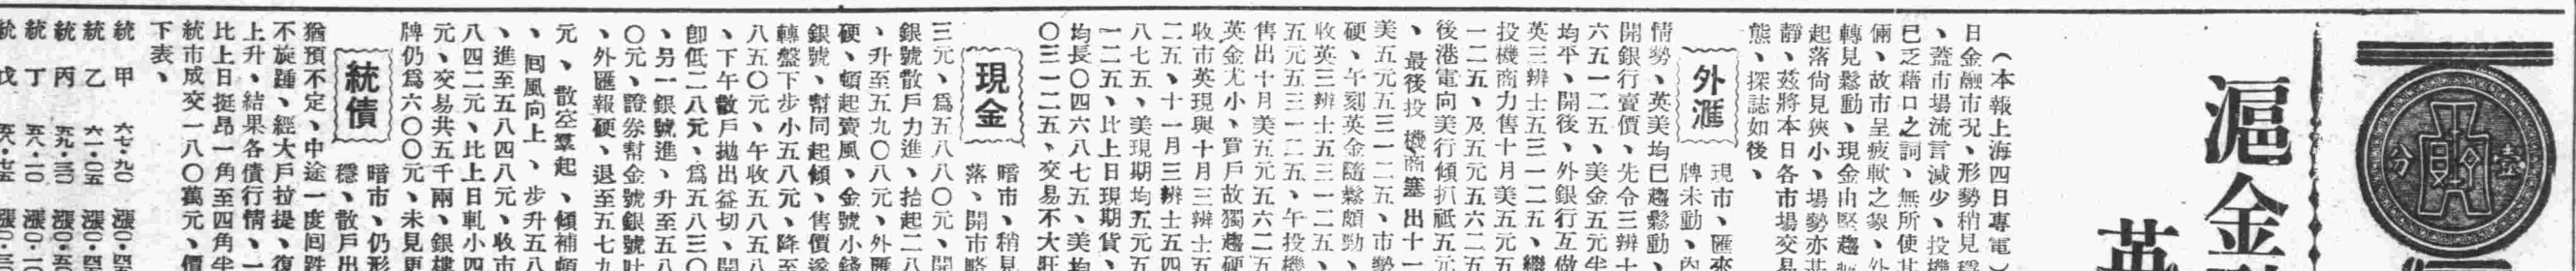 分 壹
滬金
英
（本報上海四日專電）
日金融市况、形勢稍見穩
、蓋市場流言減少、投機
已乏藉口之詞、無所使其
倆、故市呈疲軟之象、外
轉見鬆動、現金由堅趨
起落尙見狹小、場勢亦甚
靜、茲將本日各市場交易
態、探誌如後、
外滙
現市、匯豐
牌未動、內
情勢、英美均已趨鬆動、
開銀行賣價、先令三辨士
六五一二五、美金五元半
均平、開後、外銀行互做
英三辨士五三一二五、繼
投機商力售十月美五元五
一二五、及五元五六二五
後港電向美行傾扒祗五元
、最後投機商塞出十一
美五元五三一二五、市勢
硬、午刻英金隨鬆頗勁、
收英三辨士五三一二五、
五元五三一二五、午投機
售出十月美五元五六二五
英金尤小、買戶故獨趨硬
收市英現與十月三辨士五
二五、十一月三辨士五四
八七五、美現期均五元五
一二五、比上日現期貨、
均長〇四六八七五、美均
〇三一二五、交易不大旺
現金
暗市、稍見
落、開市略
三元、爲五八八〇元、開
銀號散戶力進、抬起二八
、升至五九〇八元、外匯
硬、頓起賣風、金號小錢
銀號、幫同起傾、售價遂
轉盤下步小五八元、降至
八五〇元、午收五八五八
、下午散戶拋出益切、開
卽低二八元、爲五八三〇
、另一銀號進、升至五八
〇元、證券幫金號銀號吐
、外匯報硬、退至五七九
元、散空羣起、傾補頓
、囘風向上、步升五八
、進至五八四八元、收市
八四二元、比上日軋小四
元、交易共五千兩、銀樓
牌仍爲六〇〇元、未見更
統債
暗市、仍形
穩、散戶出
猶預不定、中途一度囘跌
不旋踵、經大戶拉提、復
上升、結果各債行情、一
比上日挺昂一角至四角半
統市成交一八〇萬元、價
下表、
統甲 六七·九〇 漲〇·四五
統乙 六一·〇五 漲〇·四
統丙 五九·三〇 漲〇·五〇
統丁 五八·二〇 漲〇·一〇
統戊 五八·七五 漲〇·三